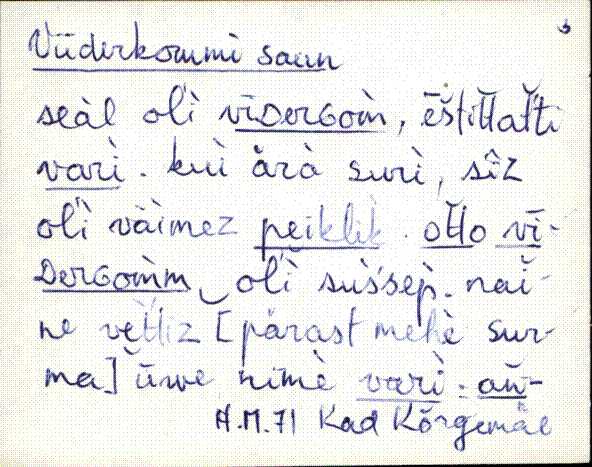 Viiderkommi saun
seàl ol'ì vīDerGom̀, ēštittat't'i
varì. kuì ärà surì, sîz
ol'ì väimez peiklik̀. otto vī-
DerGom̀m, ol'ì sus'sep̀. naì-
ne vettiz [pärast mehè sur-
ma] ūwe nimè varì.
H.M. 71 Kad Kõrgemäe